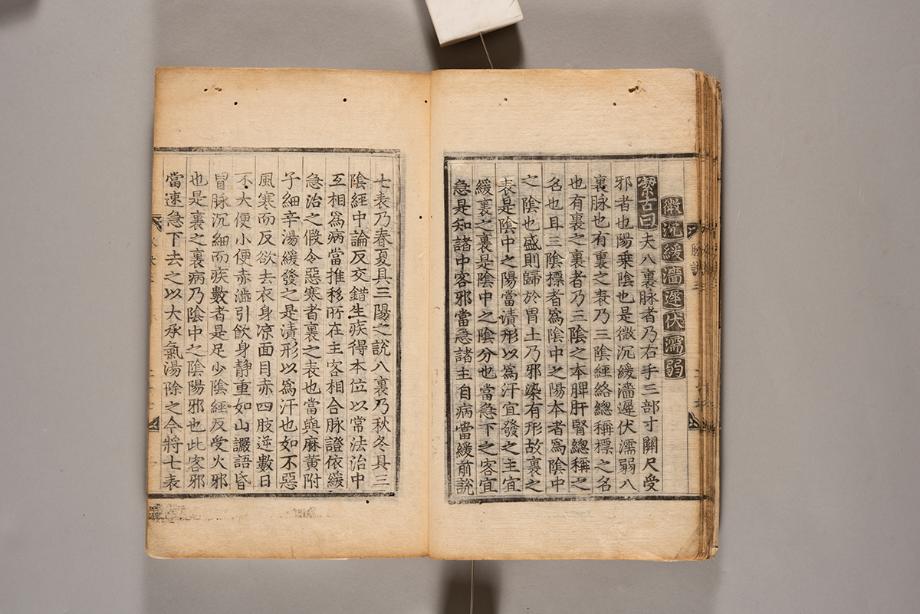 微沉緩濇遲伏濡弱
潔古曰夫八裏脉者乃右手三部寸關尺受
邪者也陽乗陰也是微沉緩濇遲伏濡弱八
裏脉也有裏之表乃三陰經絡總稱標之名
也有裏之裏者乃三陰之本脾肝腎總稱之
名也且三陰標者爲陰中之陽本者爲陰中
之陰也盛則歸於胃土乃邪染有形故裏之
表是陰中之陽當漬形以爲汗宜發之主宜
緩裏之裏是陰中之陰分也當急下之客宜
急是知諸中客邪當急諸主自病當緩前說
七表乃春夏具三陽之說八裏乃秋冬具三
陰經中論反交錯生疾得本位以常法治中
互相爲病當推移所在主客相合脉證依緩
急治之假令惡寒者裏之表也當與麻黃附
子細辛湯緩發之是漬形以爲汗也如不惡
風寒而反欲去衣身凉面目赤四肢逆數日
不大便小便赤澁引飲身靜重如山讝語昏
冒脉沉細而疾數者是足少陰經反受火邪
也是裏之裏病乃陰中之陰陽邪也此客邪
當速急下去之以大承氣湯除之今將七表